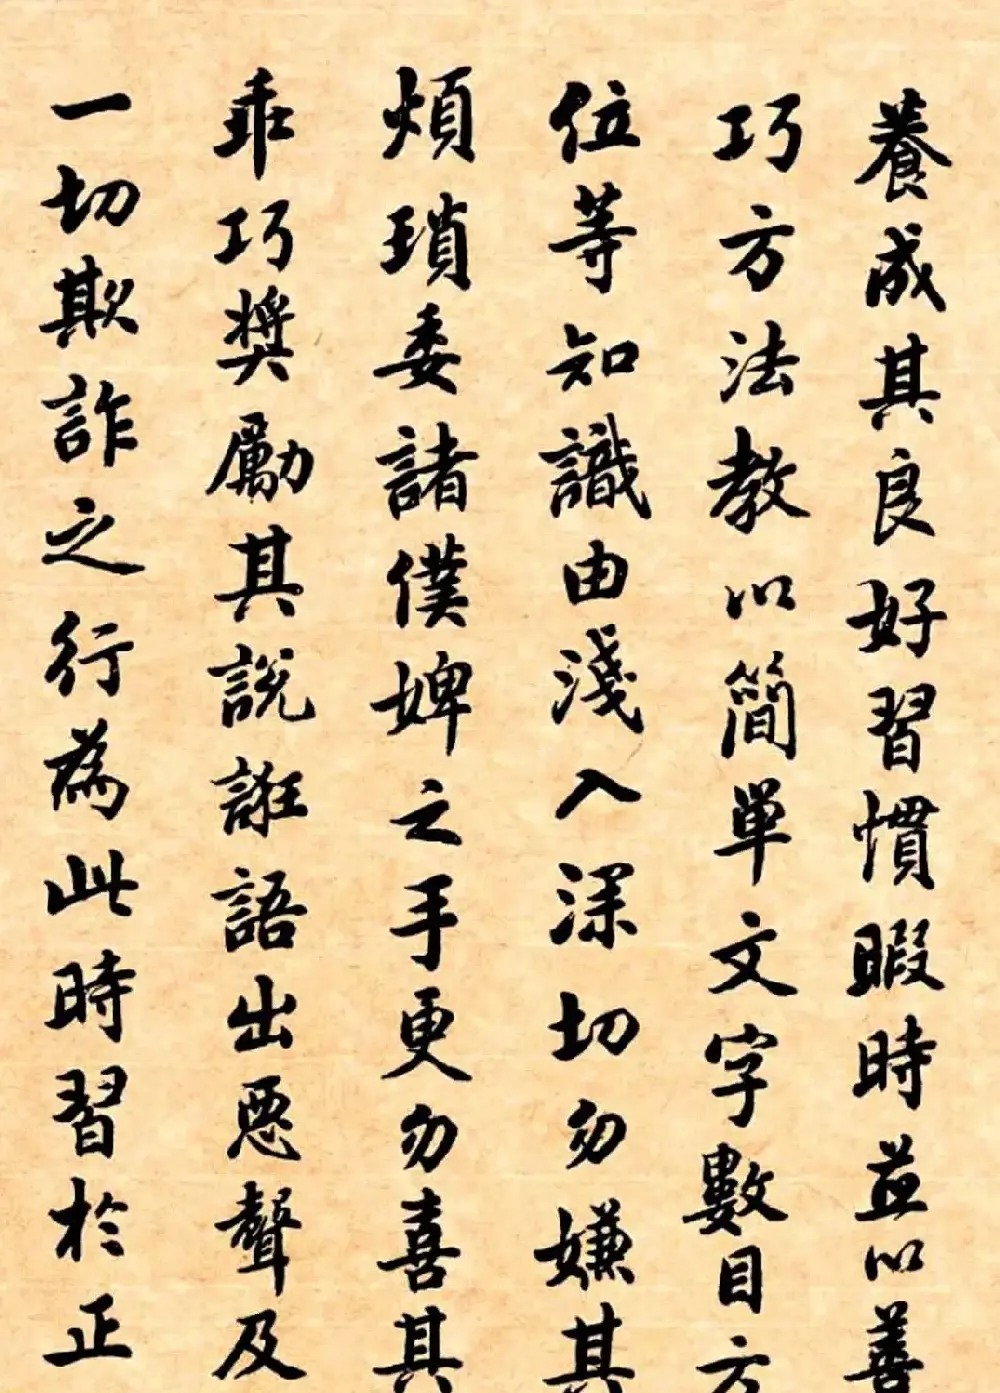 養成其良好習慣暇時並以善
巧方法教以簡單文字數目方
位等知識由淺入深切勿嫌其
煩瑣委諸僕婢之手更勿喜其
乖巧獎勵其說誑語出惡聲及
一切欺詐之行為此時習於正